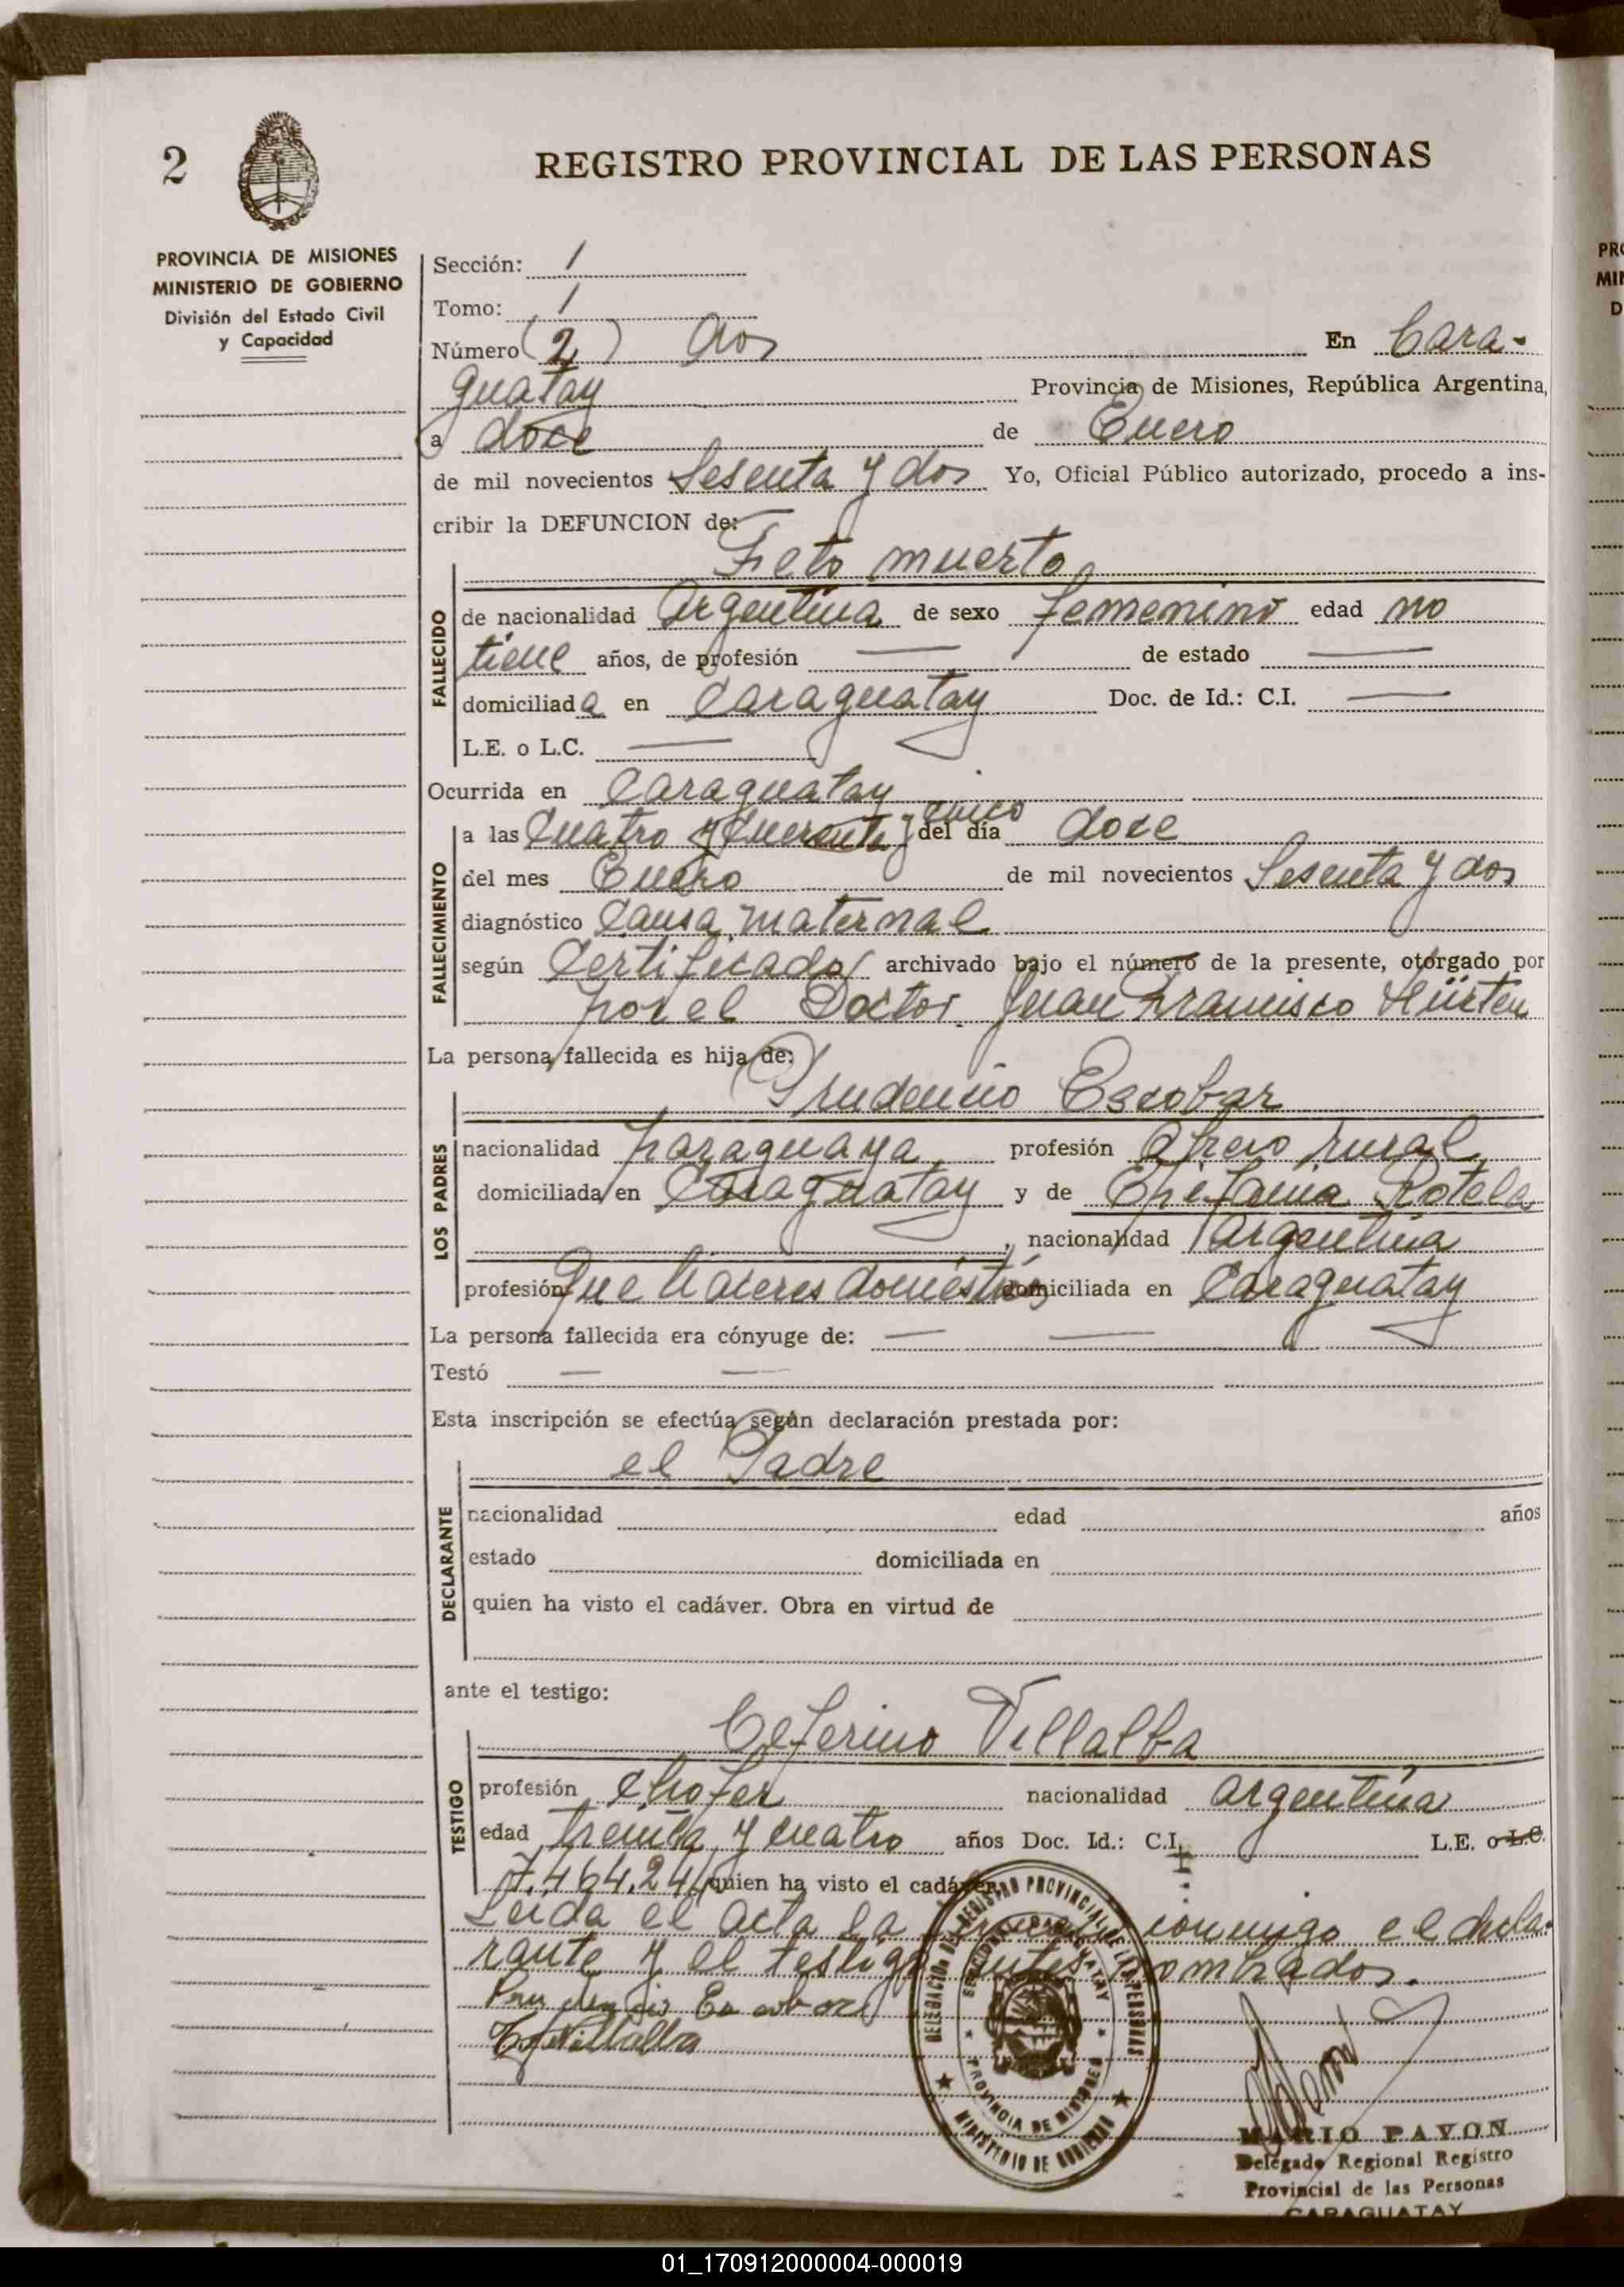 2
REGISTRO PROVINCIAL DE LAS PERSONAS
PROVINCIA DE MISIONES
MINISTERIO DE GOBIERNO
División del Estado Civil
y Capacidad
Sección: 1
Tomo: 1
Número (2) dos En Cara-
guatay Provincia de Misiones, República Argentina,
a doce de Enero
de mil novecientos Sesenta y dos Yo, Oficial Público autorizado, procedo a ins-
cribir la DEFUNCION de:
Feto muerto
FALLECIDO
de nacionalidad Argentina de sexo femenino edad no
tiene años, de profesión — de estado —
domiciliada en Caraguatay Doc. de Id.: C.I. —
L.E. o L.C. —
Ocurrida en Caraguatay
FALLECIMIENTO
a las Cuatro y Cuarenta y cinco del día doce
del mes Enero de mil novecientos Sesenta y dos
diagnóstico Causa maternal
según Certificado archivado bajo el número de la presente, otorgado por
por el Doctor Juan Francisco Hürten
La persona fallecida es hija de:
Prudencio Escobar
LOS PADRES
nacionalidad paraguaya profesión Obrero rural
domiciliada en Caraguatay y de Epefania Rotela
, nacionalidad Argentina
profesión Que haceres domésticos domiciliada en Caraguatay
La persona fallecida era cónyuge de: — —
Testó — —
Esta inscripción se efectúa según declaración prestada por:
el Padre
DECLARANTE
nacionalidad edad años
estado domiciliada en
quien ha visto el cadáver. Obra en virtud de
ante el testigo:
Ceferino Villalba
TESTIGO
profesión Chofer nacionalidad argentina
edad treinta y cuatro años Doc. Id.: C.I. L.E. o L.C.
7.464.244 quien ha visto el cadáver.
Leída el acta la conmigo el decla-
rante y el testigo antes nombrados.
Prudencio Escobar
C. Villalba
DELEGACION DEL REGISTRO PROVINCIAL DE LAS PERSONAS
MINISTERIO DE GOBIERNO
PROVINCIA DE MISIONES
MARIO PAVON
Delegado Regional Registro
Provincial de las Personas
CARAGUATAY
01_170912000004-000019